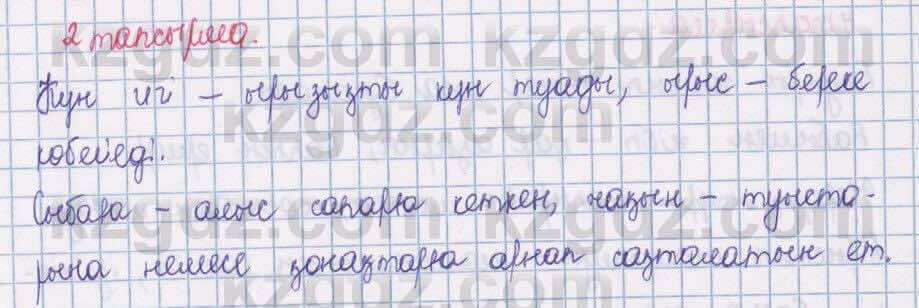 2 тапсырма.
Күн игі – ырызықты күн туады, ырыс – береке
көбейеді.
Сыбаға – алыс сапарға кеткен, жақын – туыста-
рына немесе қонақтарға арнап сақталатын ет.